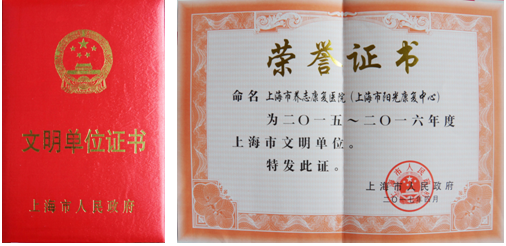 文明单位证书
上海市人民政府
荣誉证书
命名 上海市养志康复医院（上海市阳光康复中心）
为二〇一五～二〇一六年度
上海市文明单位。
特发此证。
上海市人民政府
二〇一七年四月